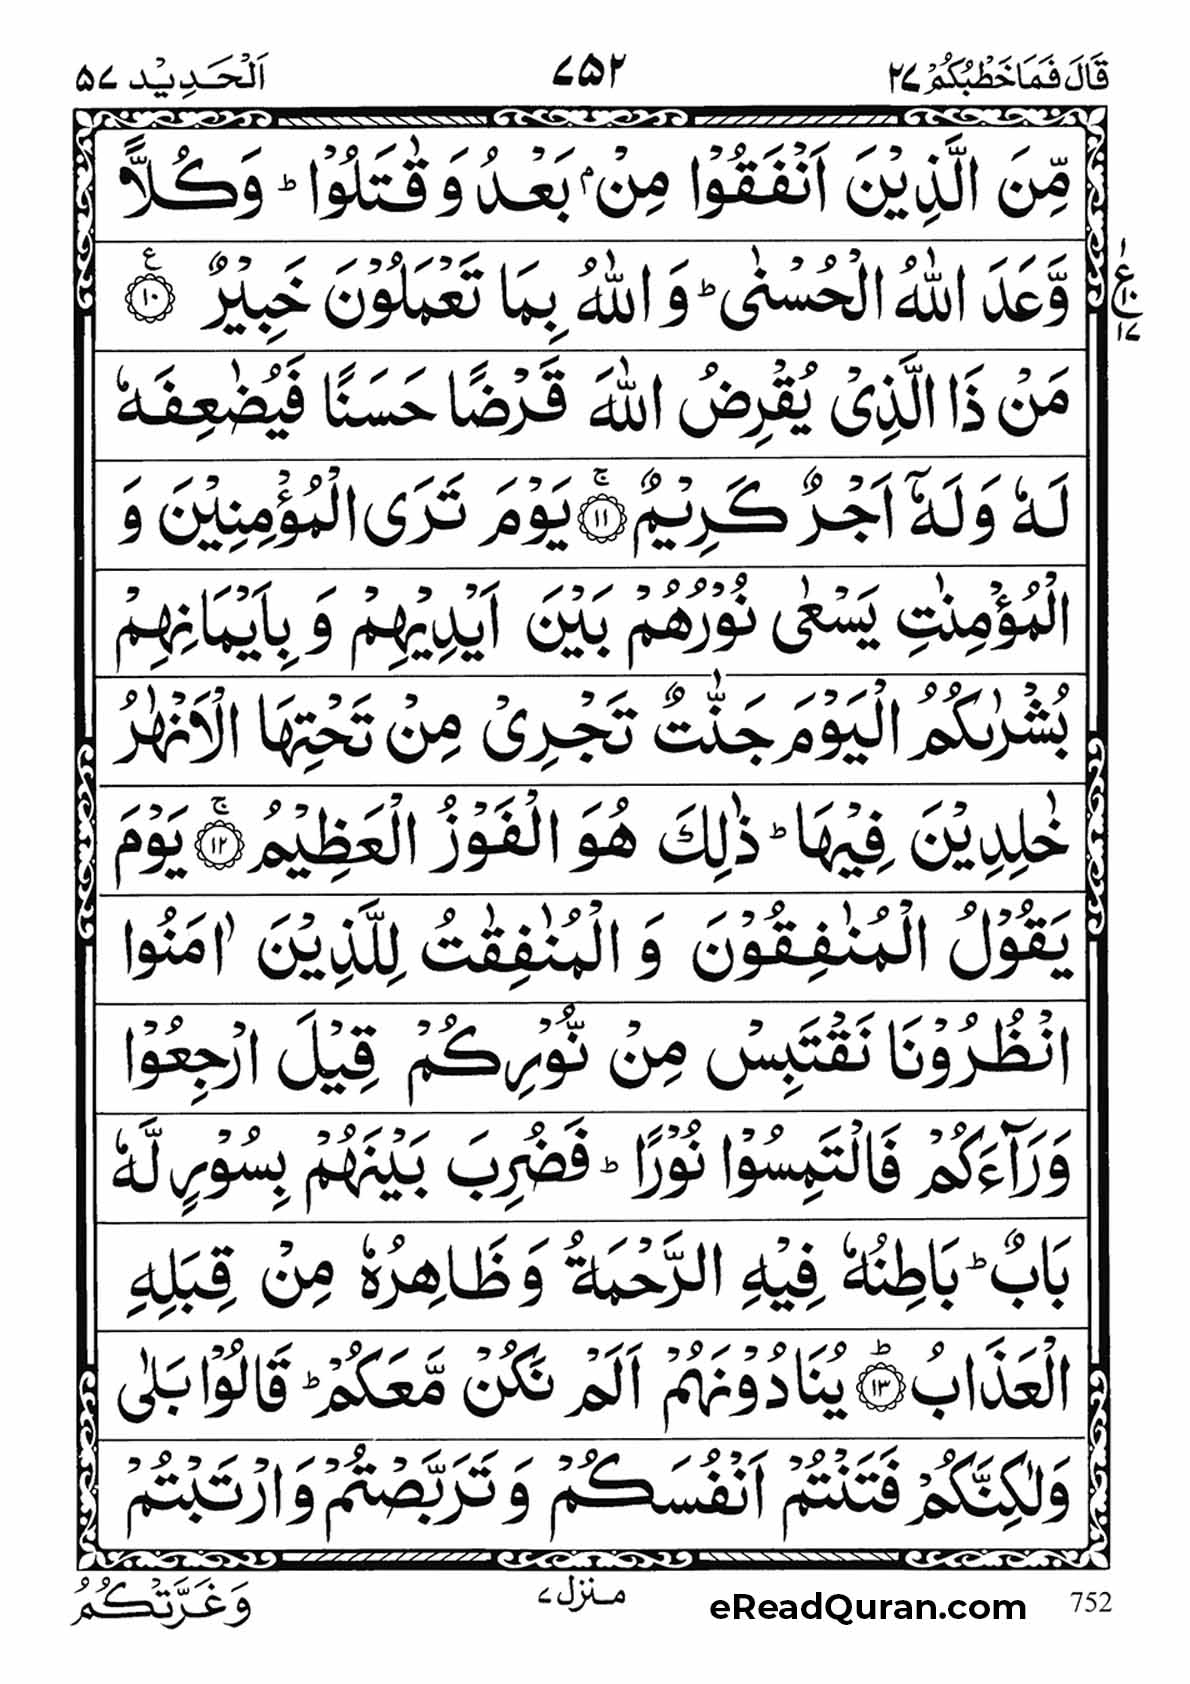 قَالَ فَمَا خَطْبُكُمْ ٢٧ ٧٥٢ اَلْحَدِيْد ٥٧
مِّنَ الَّذِيْنَ اَنْفَقُوْا مِنْۢ بَعْدُ وَ قٰتَلُوْا ؕ وَ كُلًّا
وَّعَدَ اللّٰهُ الْحُسْنٰى ؕ وَ اللّٰهُ بِمَا تَعْمَلُوْنَ خَبِيْرٌ ﴿١٠﴾ ع
١ ع ١٠ ١٧
مَنْ ذَا الَّذِيْ يُقْرِضُ اللّٰهَ قَرْضًا حَسَنًا فَيُضٰعِفَهٗ
لَهٗ وَ لَهٗۤ اَجْرٌ كَرِيْمٌ ﴿١١﴾ ۚ يَوْمَ تَرَى الْمُؤْمِنِيْنَ وَ
الْمُؤْمِنٰتِ يَسْعٰى نُوْرُهُمْ بَيْنَ اَيْدِيْهِمْ وَ بِاَيْمَانِهِمْ
بُشْرٰىكُمُ الْيَوْمَ جَنّٰتٌ تَجْرِيْ مِنْ تَحْتِهَا الْاَنْهٰرُ
خٰلِدِيْنَ فِيْهَا ؕ ذٰلِكَ هُوَ الْفَوْزُ الْعَظِيْمُ ﴿١٢﴾ ۚ يَوْمَ
يَقُوْلُ الْمُنٰفِقُوْنَ وَ الْمُنٰفِقٰتُ لِلَّذِيْنَ اٰمَنُوا
انْظُرُوْنَا نَقْتَبِسْ مِنْ نُّوْرِكُمْ قِيْلَ ارْجِعُوْا
وَرَآءَكُمْ فَالْتَمِسُوْا نُوْرًا ؕ فَضُرِبَ بَيْنَهُمْ بِسُوْرٍ لَّهٗ
بَابٌ ؕ بَاطِنُهٗ فِيْهِ الرَّحْمَةُ وَ ظَاهِرُهٗ مِنْ قِبَلِهِ
الْعَذَابُ ﴿١٣﴾ ؕ يُنَادُوْنَهُمْ اَلَمْ نَكُنْ مَّعَكُمْ ؕ قَالُوْا بَلٰى
وَلٰكِنَّكُمْ فَتَنْتُمْ اَنْفُسَكُمْ وَ تَرَبَّصْتُمْ وَ ارْتَبْتُمْ
752 eReadQuran.com منزل ٧ وَ غَرَّتْكُمُ